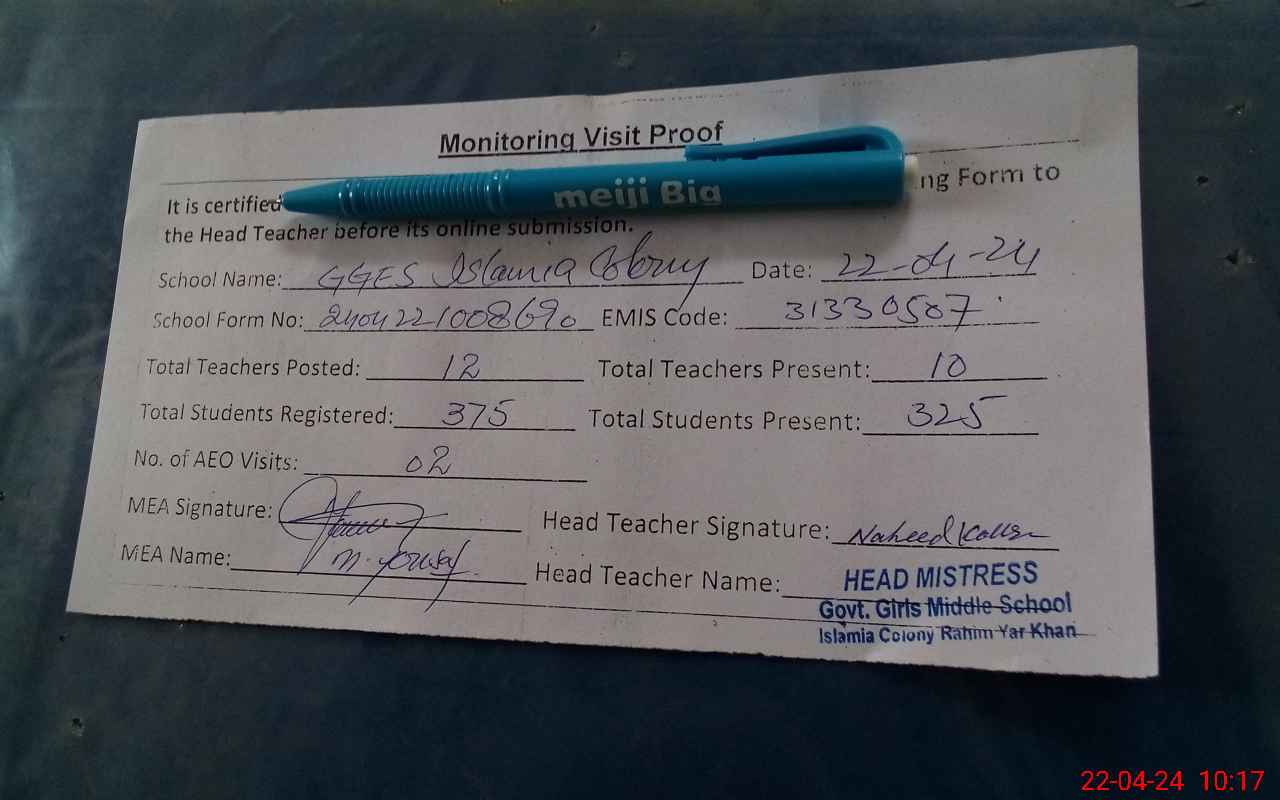 Monitoring Visit Proof
It is certified ng Form to
meiji Big
the Head Teacher before its online submission.
School Name: GGES Islamia Colony Date: 22-04-24
School Form No: 2404221008690 EMIS Code: 31330507
Total Teachers Posted: 12 Total Teachers Present: 10
Total Students Registered: 375 Total Students Present: 325
No. of AEO Visits: 02
MEA Signature: Head Teacher Signature: Naheed
MEA Name: M. Yousaf Head Teacher Name:
HEAD MISTRESS
Govt. Girls Middle School
Islamia Colony Rahim Yar Khan
22-04-24 10:17